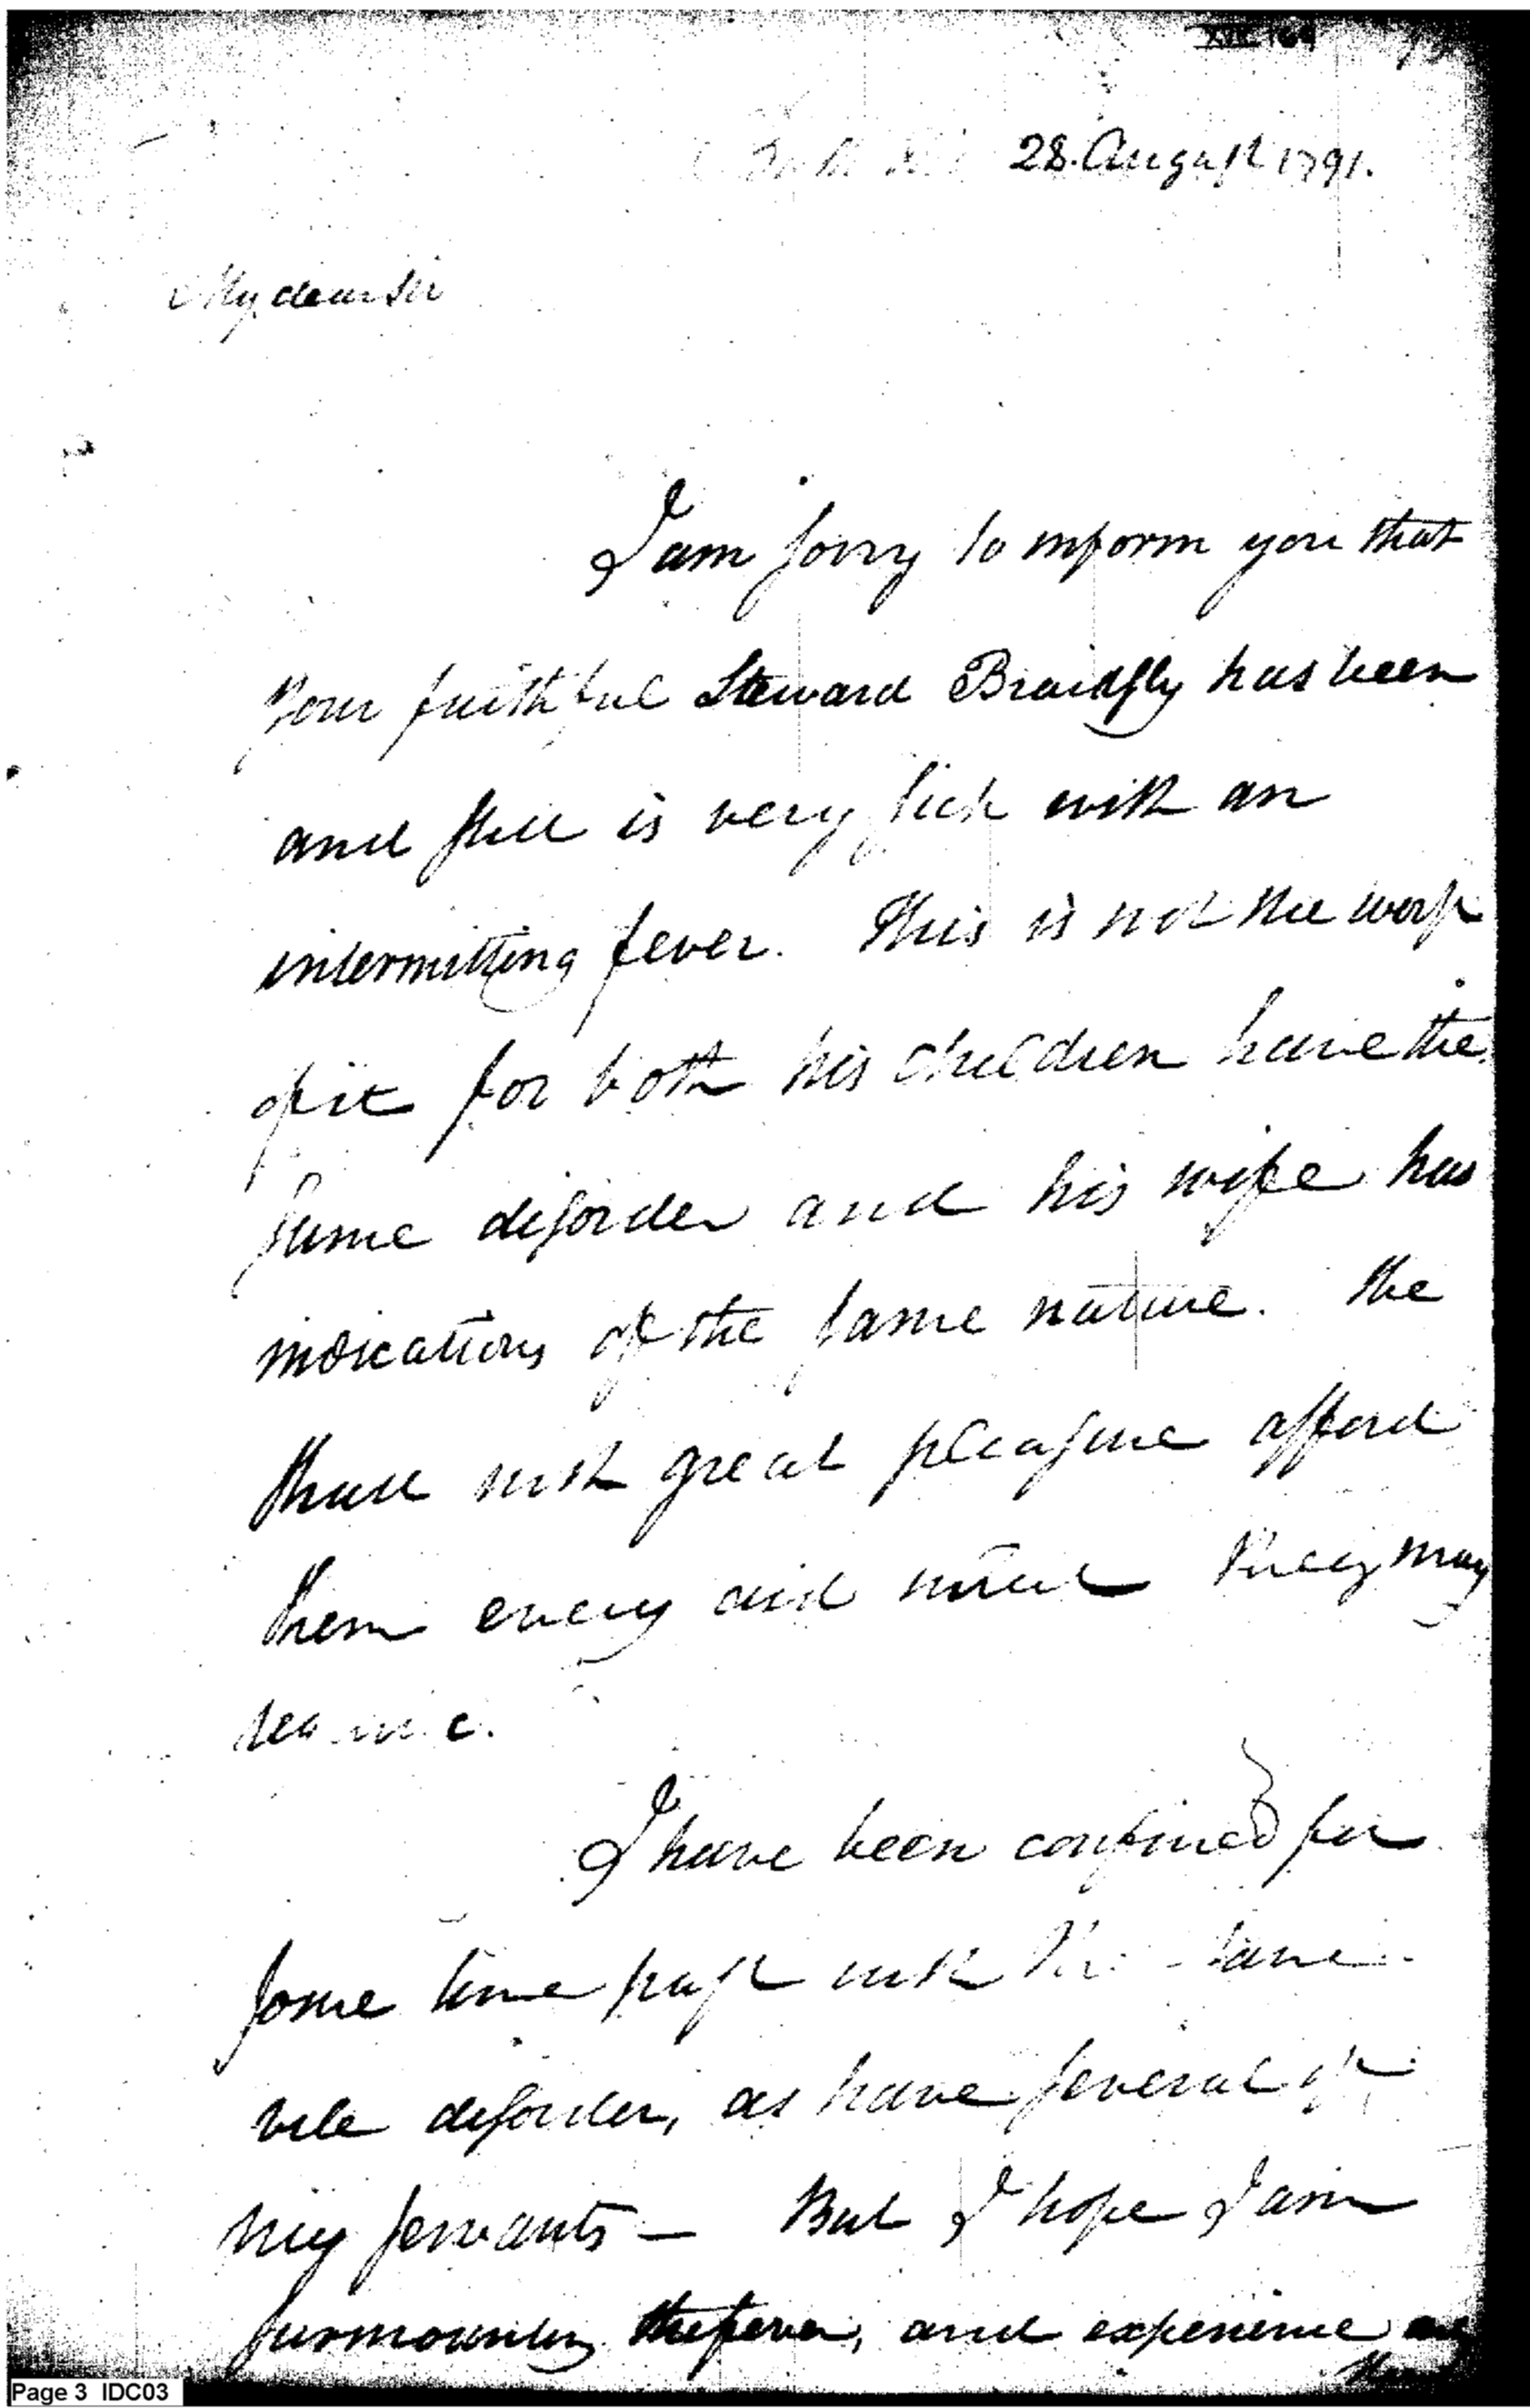 XVII 169
28. August 1791.
My dear Sir
I am sorry to inform you that
Your faithful Steward Braidfly has been
and still is very sick with an
intermitting fever. This is not the worst
of it for both his children have the
same disorder and his wife has
indications of the same nature. The
shall with great pleasure afford
them every aid until they may
I have been confined for
some time past with the same
vile disorder, as have several of
my servants — But I hope I am
surmounting the fever, and experience
Page 3 IDC03